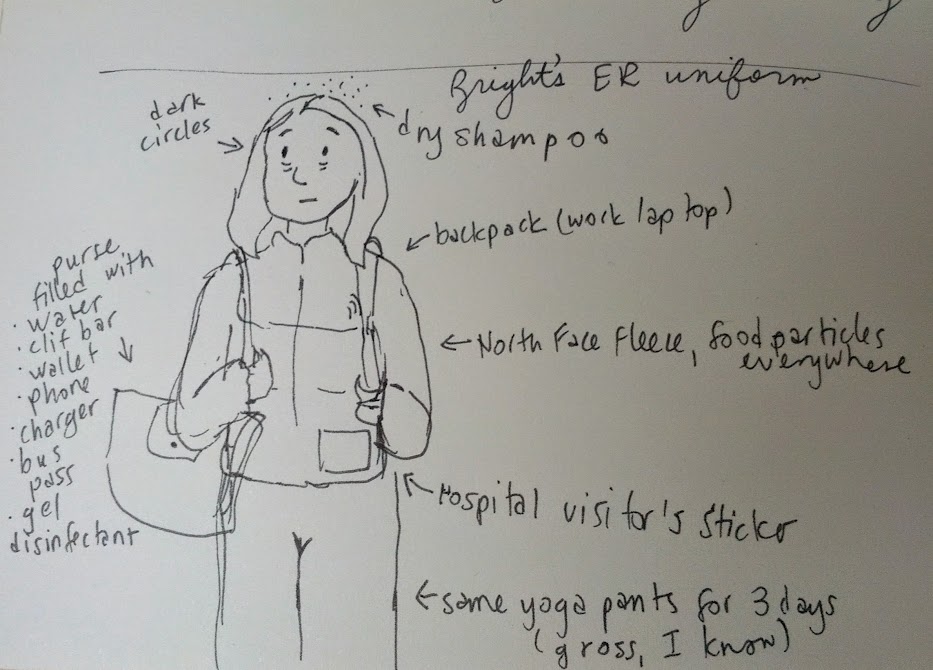 Bright's ER uniform
dark
circles
dry shampoo
backpack (work laptop)
purse
filled with
· water
· clif bar
· wallet
· phone
· charger
· bus
pass
· gel
disinfectant
North Face Fleece, food particles
everywhere
Hospital visitor's sticker
same yoga pants for 3 days
(gross, I know)